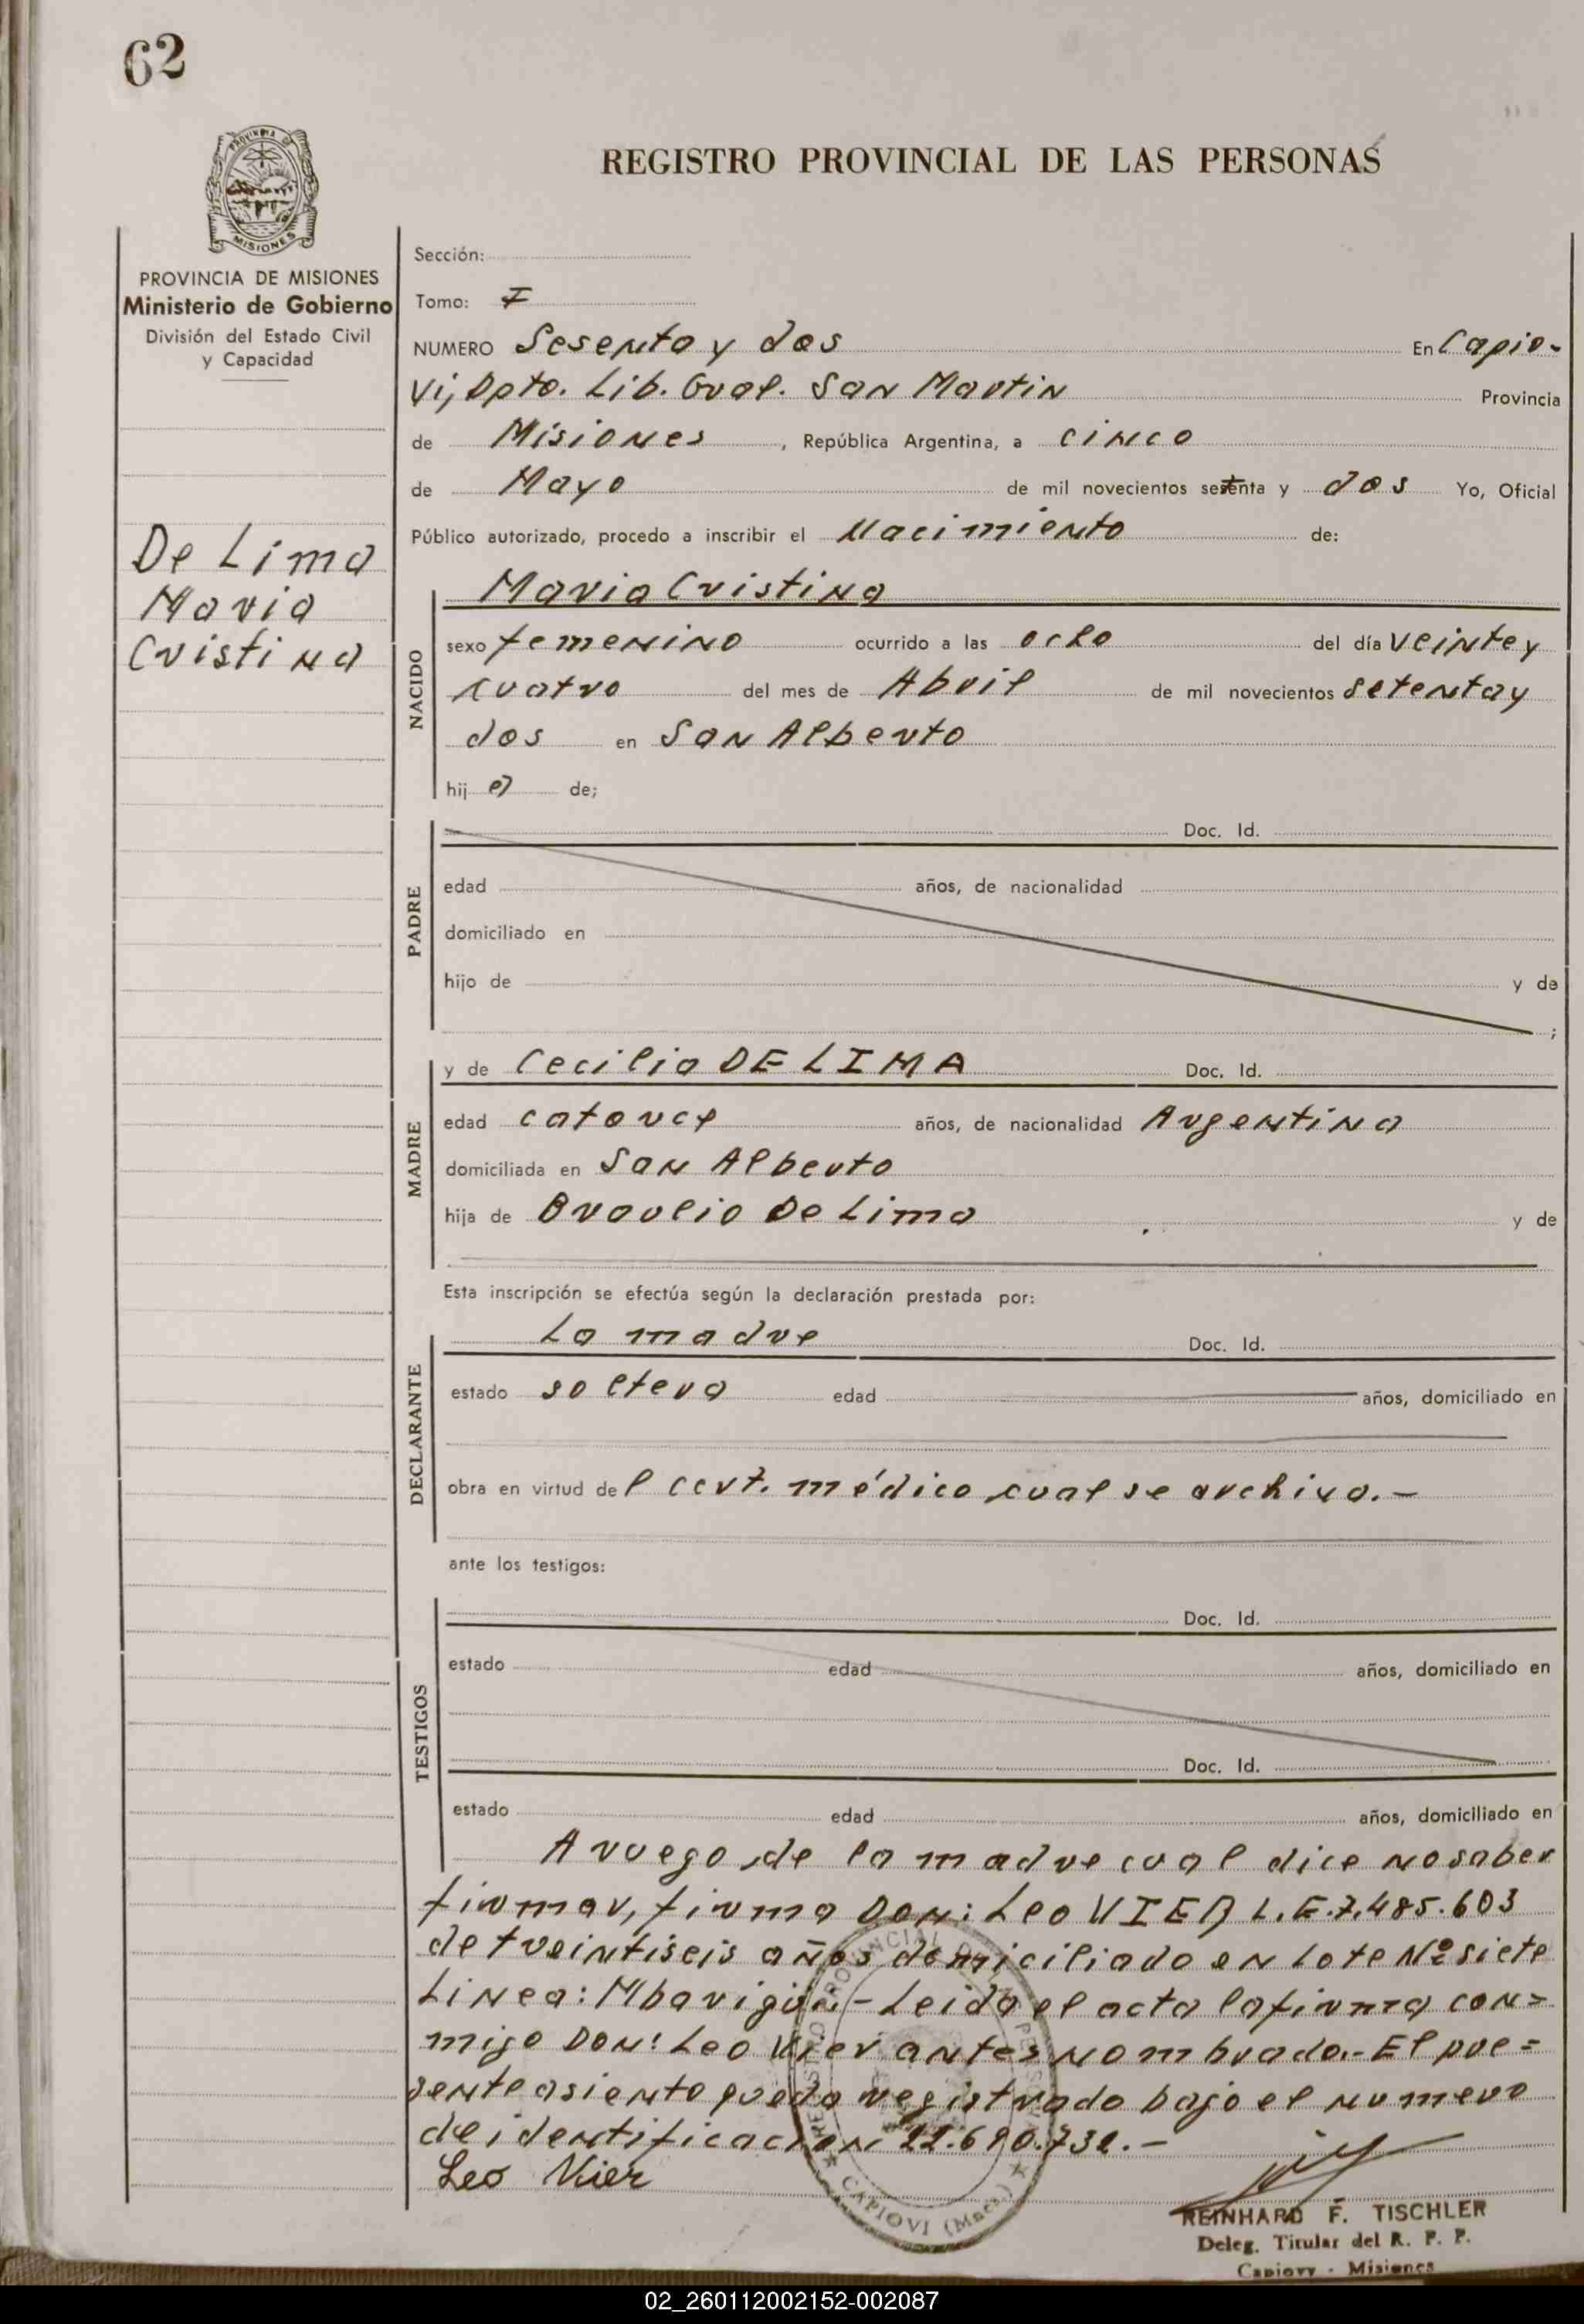 62
PROVINCIA DE MISIONES
REGISTRO PROVINCIAL DE LAS PERSONAS
PROVINCIA DE MISIONES
Ministerio de Gobierno
División del Estado Civil
y Capacidad
De Lima
Maria
Cristina
Sección:
Tomo: I
NUMERO Sesenta y dos En Capio-
vi, Dpto. Lib. Gral. San Martin Provincia
de Misiones, República Argentina, a cinco
de Mayo de mil novecientos setenta y dos Yo, Oficial
Público autorizado, procedo a inscribir el Nacimiento de:
NACIDO
Maria Cristina
sexo femenino ocurrido a las ocho del día veinte y
cuatro del mes de Abril de mil novecientos setenta y
dos en San Alberto
hija de;
PADRE
Doc. Id.
edad años, de nacionalidad
domiciliado en
hijo de y de
;
MADRE
y de Cecilia DE LIMA Doc. Id.
edad catorce años, de nacionalidad Argentina
domiciliada en San Alberto
hija de Braulio De Lima y de
Esta inscripción se efectúa según la declaración prestada por:
DECLARANTE
La madre Doc. Id.
estado soltera edad años, domiciliado en
obra en virtud del cert. médico cual se archiva.-
ante los testigos:
TESTIGOS
Doc. Id.
estado edad años, domiciliado en
Doc. Id.
estado edad años, domiciliado en
A ruego de la madre cual dice no saber
firmar, firma Don: Leo VIER L.E.7.485.603
de treintiseis años domiciliado en Lote Nº siete
Linea: Mbarigüi.- Leida el acta la firma con=
migo Don: Leo Vier antes nombrado.- El pre=
sente asiento queda registrado bajo el numero
de identificacion
Leo Vier
REGISTRO PROVINCIAL DE LAS PERSONAS
CAPIOVI (Mnes.)
REINHARD F. TISCHLER
Deleg. Titular del R. P. P.
Capiovy - Misiones
02_260112002152-002087